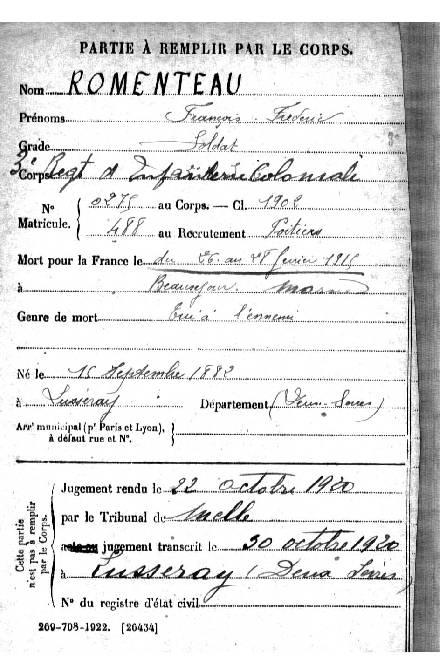 PARTIE À REMPLIR PAR LE CORPS.
Nom ROMENTEAU
Prénoms François Frédéric
Grade Soldat
Corps 3e Regt d'Infanterie Coloniale
N° Matricule. { 0275 au Corps. — Cl. 1902
488 au Recrutement Poitiers
Mort pour la France le du 26 au 28 février 1915
à Beauséjour Marne
Genre de mort Tué à l'ennemi
Né le 15 Septembre 1882
à Lusseray Département (Deux-Sèvres)
Arrt municipal (pr Paris et Lyon), à défaut rue et N°. }
Cette partie n'est pas à remplir par le Corps.
Jugement rendu le 22 octobre 1920
par le Tribunal de Melle
jugement transcrit le 30 octobre 1920
à Lusseray (Deux Sèvres)
N° du registre d'état civil
269-708-1922. [26434]